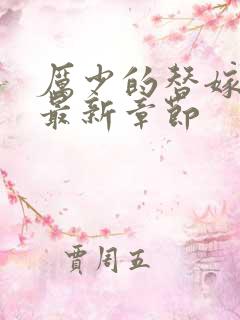 厲少的替嫁
最新章節
賈周五